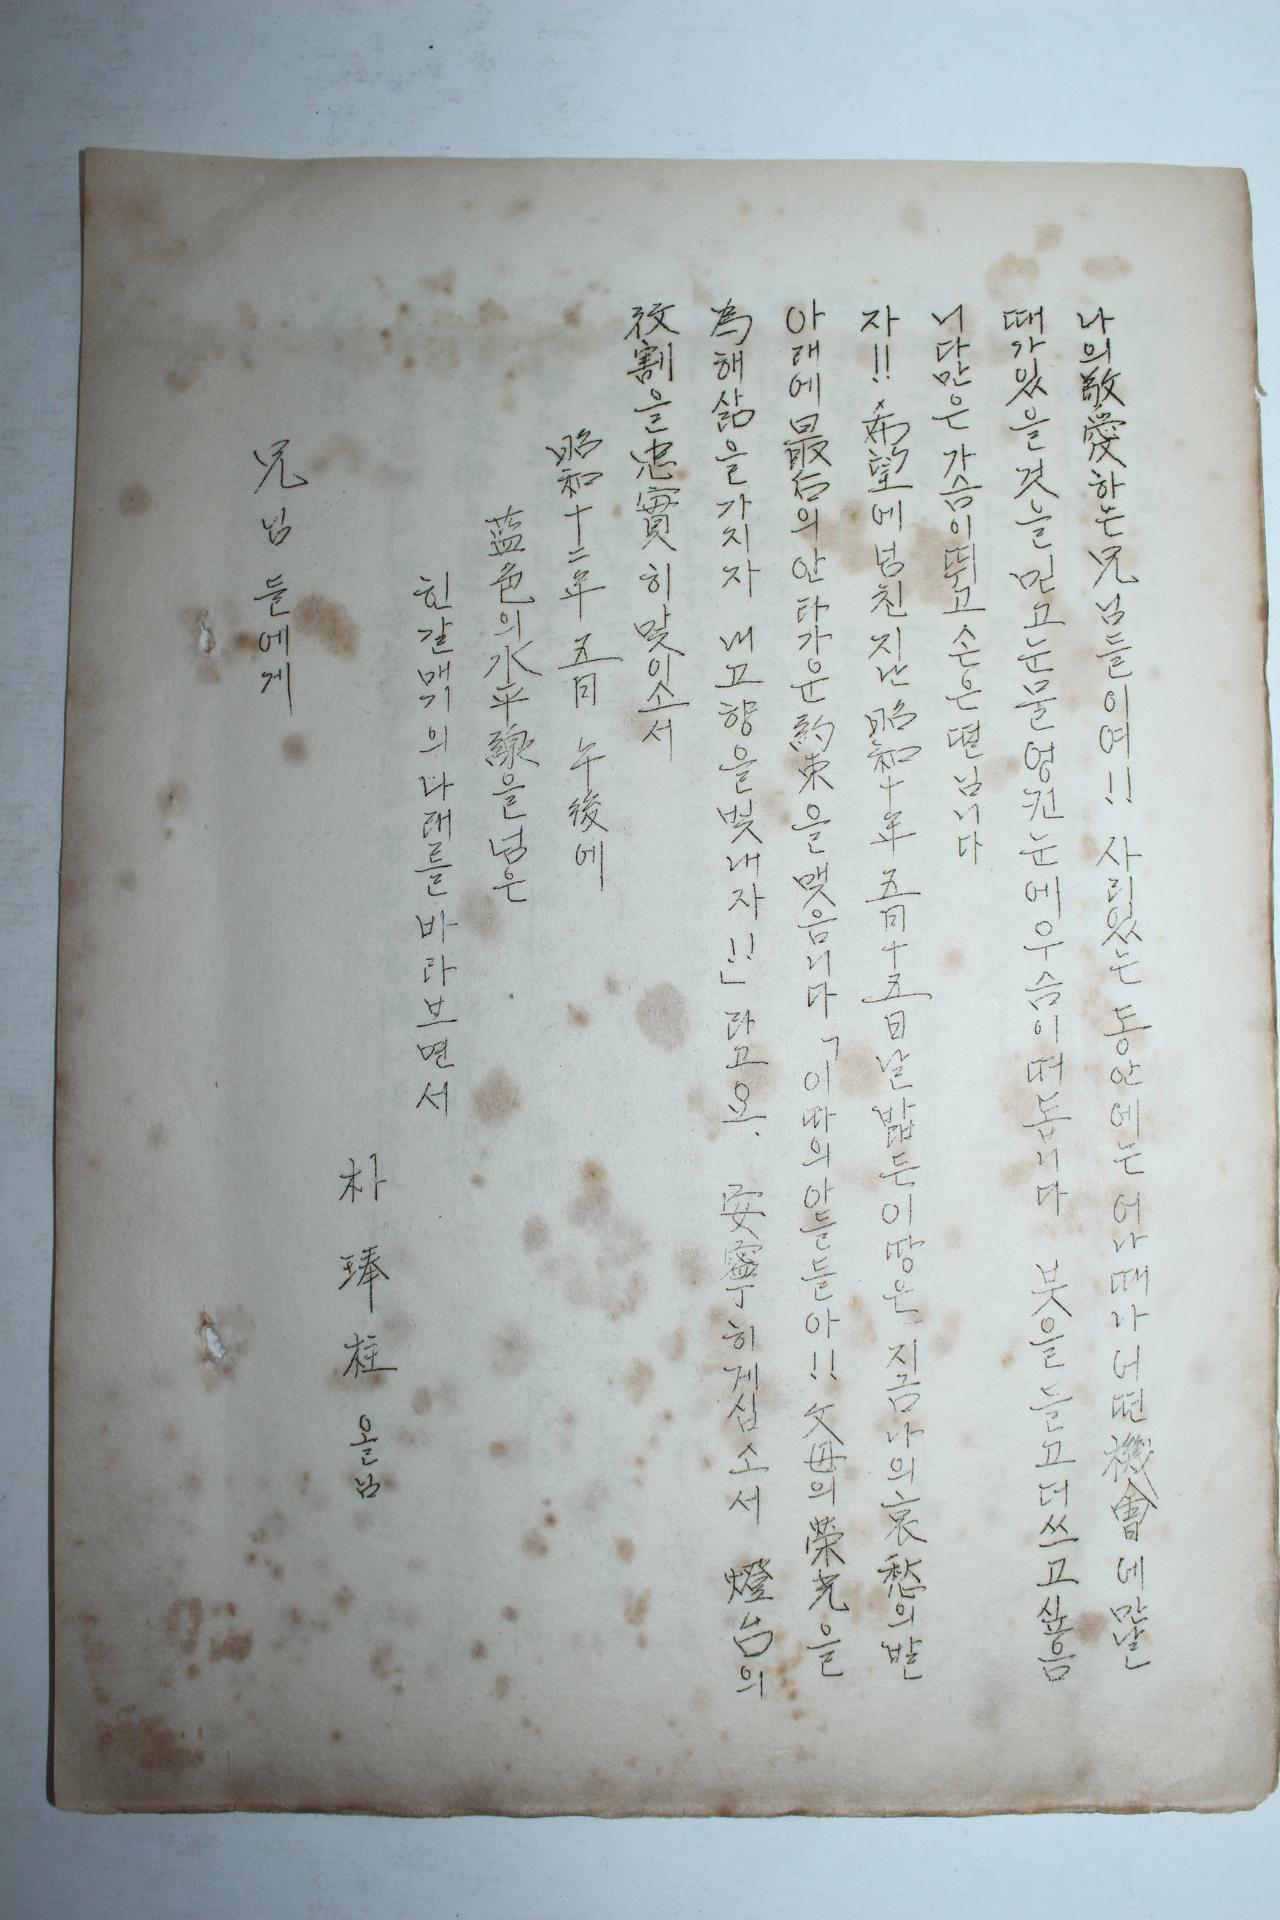 나의敬愛하는兄님들이여!! 사러있는 동안에는 어나때나 너떤 機會에만날
때가있을것을 믿고눈물엉킨눈에우슴이떠돕니다 붓을들고더쓰고싶음
니다만은 가슴이뛰고손은떨님니다
자!! 希望에넘친 지난 昭和十年 五月十五日날 밟든이땅은 지금나의哀愁의발
아래에最后의안타가운約束을맺음니다「이따의아들들아!! 父母의榮光을
為해삶을가지자 내고향을빛내자!!」라고요. 安寧히게십소서 燈台의
役割을忠實히맞이소서
昭和十二年 五月 午後에
蓝色의水平線을넘은
힌갈매기의나래를바라보면서
朴琫柱 올님
兄님들에게